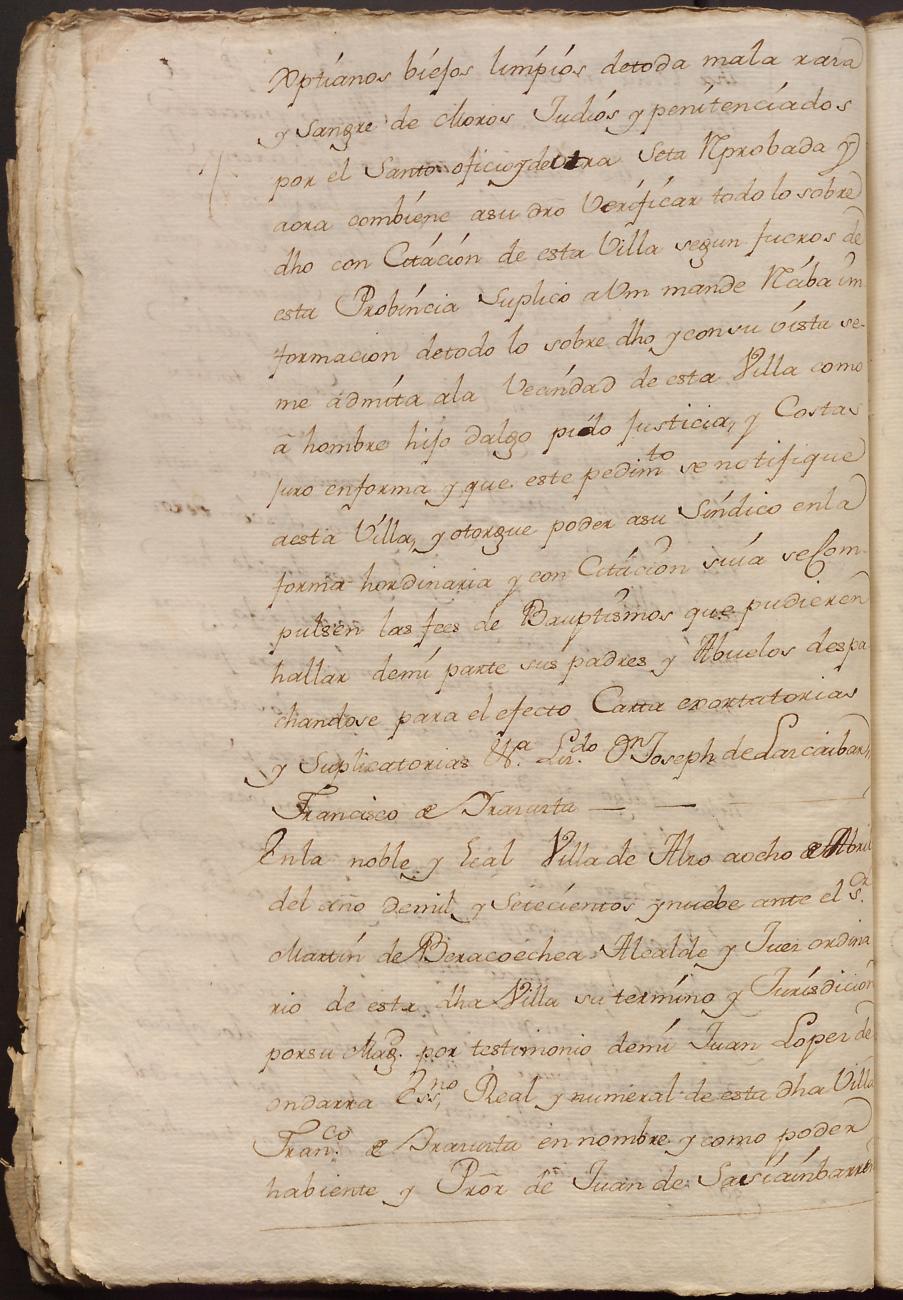 Xptianos biejos limpios detoda mala raza
y Sangre de Moros Judios y penitenciados
por el Santo oficio y de otra Seta Rprobada y
aora combiene asu dro Verificar todo lo sobre
dho con Citacion de esta Villa segun fueros de
esta Probincia Suplico aVm mande Reciba im
formacion detodo lo sobre dho y con su vista se
me admita ala Vecindad de esta Villa como
a hombre hijo dalgo pido Justicia, y Costas
juro enforma y que este pedimto se notifique
aesta Villa, y otorgue poder asu Sindico enla
forma hordinaria y con Citacion suia se Com-
pulsen las fees de Bauptismos que pudieren
hallar demi parte sus padres y Abuelos despa
chandose para el efecto Carta exortatorias
y Suplicatorias &a. Lizdo. Dn Joseph de Larcaibar
Francisco de Irazusta — —
Enla noble y Leal Villa de Alzo aocho de Abril
del año demil y Setecientos y nuebe ante el sor.
Martin de Beracoechea Alcalde y Juez ordina
rio de esta dha Villa su termino y Jurisdicion
porsu Magd. por testimonio demi Juan Lopez de
ondarra Essno, Real y numeral de esta dha Villa
Franco. de Irazusta en nombre y como poder
habiente y Pror de Juan de Sasiainbarren